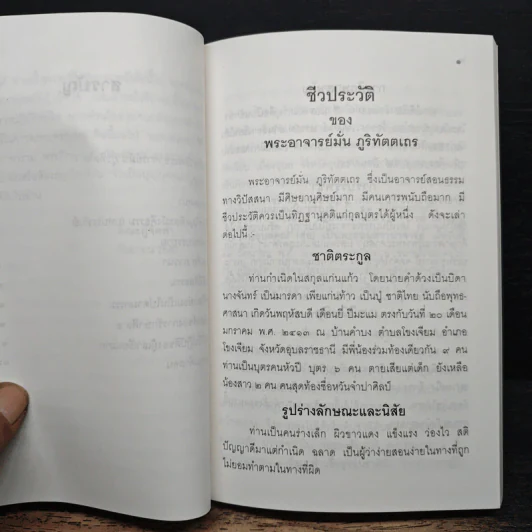 สารบัญ
๑
ชีวประวัติ
ของ
พระอาจารย์มั่น ภูริทัตตเถร
พระอาจารย์มั่น ภูริทัตตเถร ซึ่งเป็นอาจารย์สอนธรรม
ทางวิปัสสนา มีศิษยานุศิษย์มาก มีคนเคารพนับถือมาก มี
ชีวประวัติควรเป็นทิฏฐานุคติแก่กุลบุตรได้ผู้หนึ่ง ดังจะเล่า
ต่อไปนี้ :-
ชาติตระกูล
ท่านกำเนิดในสกุลแก่นแก้ว โดยนายคำด้วงเป็นบิดา
นางจันทร์ เป็นมารดา เพียแก่นท้าว เป็นปู่ ชาติไทย นับถือพุทธ-
ศาสนา เกิดวันพฤหัสบดี เดือนยี่ ปีมะแม ตรงกับวันที่ ๒๐ เดือน
มกราคม พ.ศ. ๒๔๑๓ ณ บ้านคำบง ตำบลโขงเจียม อำเภอ
โขงเจียม จังหวัดอุบลราชธานี มีพี่น้องร่วมท้องเดียวกัน ๙ คน
ท่านเป็นบุตรคนหัวปี บุตร ๖ คน ตายเสียแต่เด็ก ยังเหลือ
น้องสาว ๒ คน คนสุดท้องชื่อหวันจำปาศิลป์
รูปร่างลักษณะและนิสัย
ท่านเป็นคนร่างเล็ก ผิวขาวแดง แข็งแรง ว่องไว สติ
ปัญญาดีมาแต่กำเนิด ฉลาด เป็นผู้ว่าง่ายสอนง่ายในทางที่ถูก
ไม่ยอมทำตามในทางที่ผิด